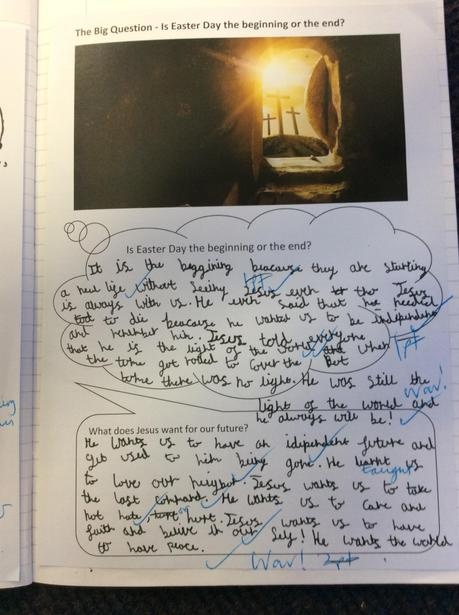 The Big Question - Is Easter Day the beginning or the end?
Is Easter Day the beginning or the end?
It is the beggining beacause they are starting
a new life without seeihy Jesus even tho Jesus
is always with us. He even said that he needed
to die beacause he wanted us to be independant
and remember him. Jesus told everyone
that he is the light of the world and when
the tome got rolled to cover the
tome there was no light. He was still the
light of the world and
he always will be!
Wow!
1pt
What does Jesus want for our future?
He wants us to have an idipendent future and
get used to him being gone. He learnt us
taught
to love our neighbor. Jesus wants us to take
the last command. He wants us to care and
not hate, or hurt. Jesus wants us to have
faith and believe in our self! He wants the world
to have peace.
Wow! 2pt